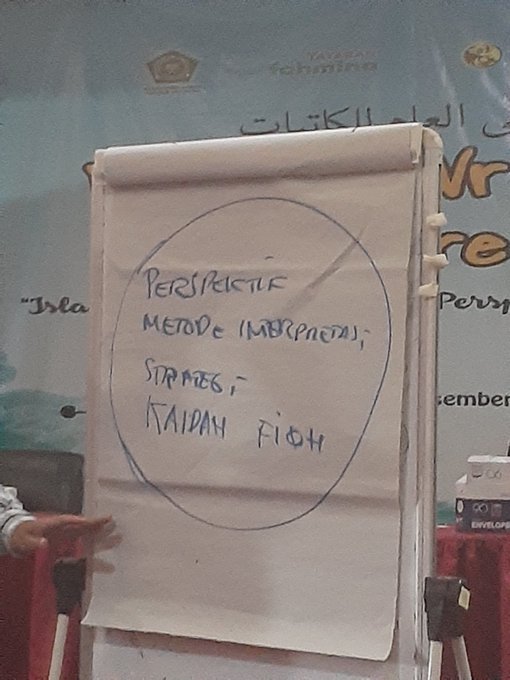 YAYASAN
fahmina
العام للكاتبات
Wr
re
"Isla
Persp
PERSPEKTIF
METODE INTERPRETASI
STRATEGI
KAIDAH FIQH
sember
ENVELOPE